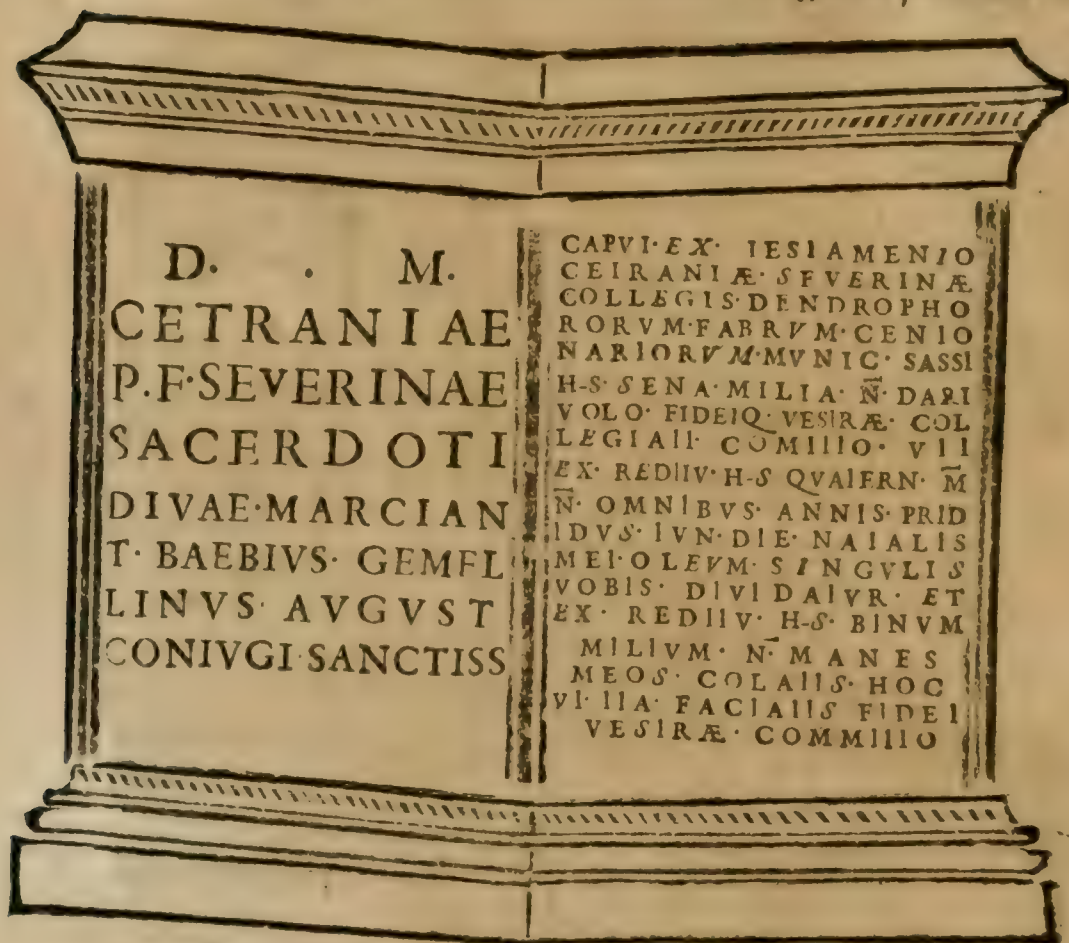 D. . M.
CETRANIAE
P.F·SEVERINAE
SACERDOTI
DIVAE·MARCIAN
T· BAEBIVS· GEMFL
LINVS· AVGVST
CONIVGI·SANCTISS
CAPVI·EX· IESIAMENIO
CEIRANIÆ·SFVERINÆ
COLLEGIS·DENDROPHO
RORVM·FABRVM·CENIO
NARIORVM·MVNIC·SASSI
H-S·SENA·MILIA·N̄·DARI
VOLO·FIDEIQ·VESIRÆ·COL
LEGIAII·COMIIIO·VII
EX·REDIIV·H-S QVAIERN·M̄
N̄·OMNIBVS·ANNIS·PRID
IDVS·IVN·DIE·NAIALIS
MEI·OLEVM·SINGVLIS
VOBIS·DIVIDAIVR·ET
EX·REDIIV·H-S·BINVM
MILIVM·N̄·MANES
MEOS·COLAIIS·HOC
VI·IIA·FACIAIIS FIDEI
VESIRÆ·COMMIIIO